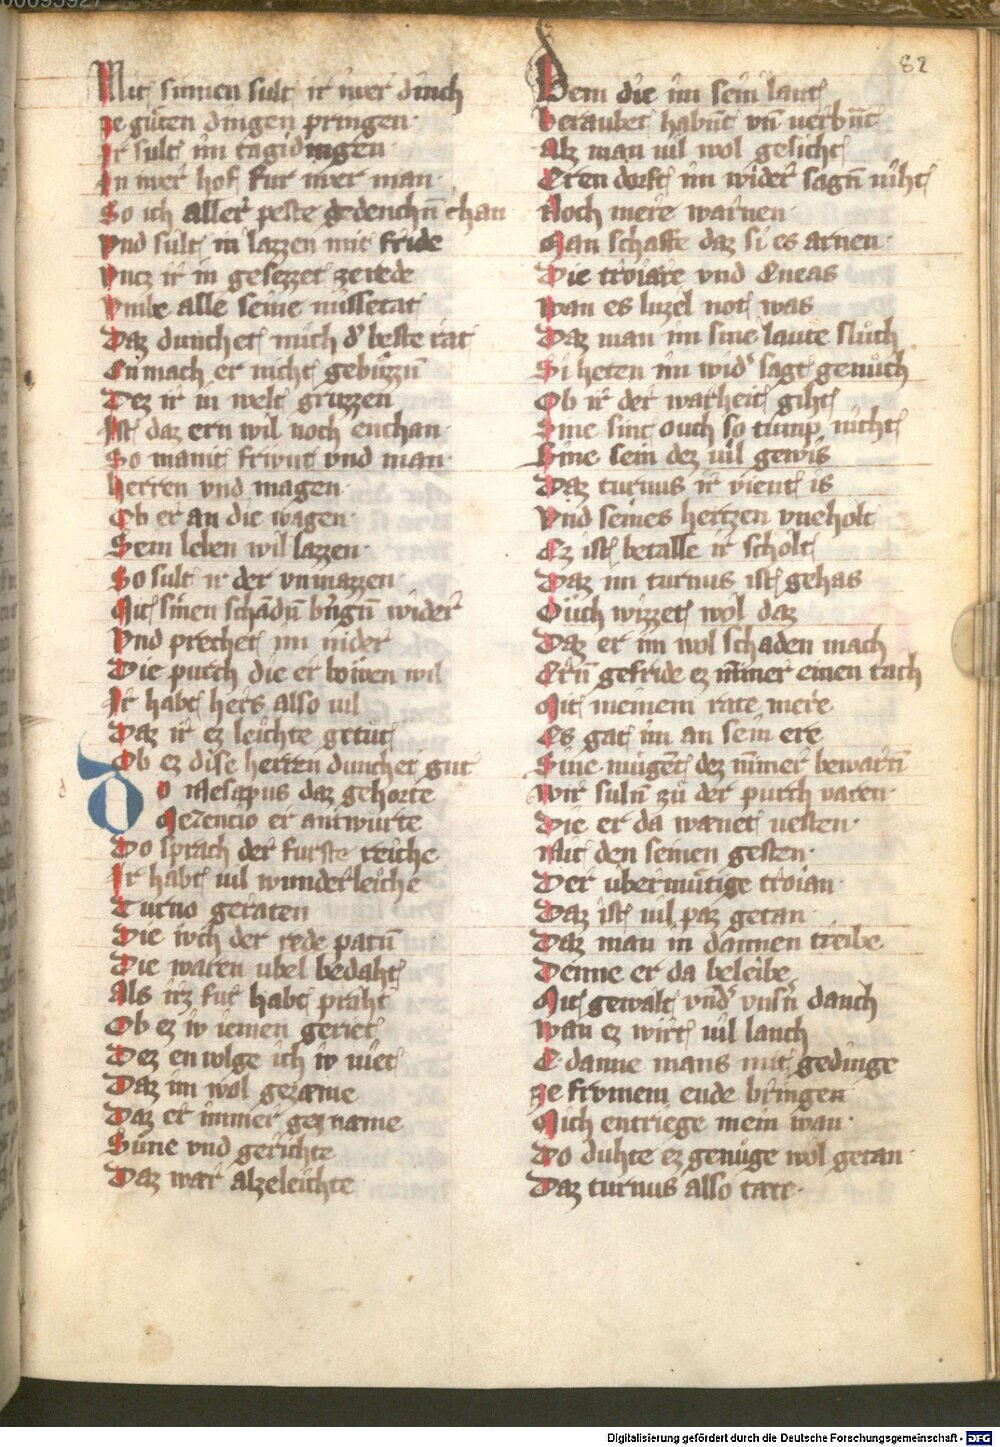 82
Mit sinnen sult ir iwer dinch
ze gůten dingen pringen
Ir sult im tagidingen
In iwer hof fur iwer man
So ich aller peste gedenchn̄ chan
Vnd sult in lazzen mit fride
Vncz ir in gesezzet ze rede
Vmbe alle seine missetat
Daz dunchet mich d' beste rat
En mach er nicht gebůzzn̄
Dez ir in welt gruzzen
Ist daz ern wil noch enchan
So mamt friunt vnd man
herren vnd magen
Ob er an die wagen
Sem leben wil lazzen
So sult ir der vnmazzen
Mit sinen schādn̄ b'ngn̄ wider
Vnd prechet im nider
Die purch die er bowen wil
Ir habt hers also uil
Daz ir ez leichte getůt
Ob ez dise herren dunchet gut
Do Mesapus daz gehorte
Merencio er antwurte
Do sprach der furste reiche
Ir habt uil wunderleiche
Turno geraten
Die iwch der rede patn̄
Die waren ubel bedaht
Als irz fur habt praht
Ob ez iv iemen geriet
Dez en volge ich iv niet
Daz im wol gezæme
Daz er immer gez næme
Sůne vnd gerichte
Daz war alzeleichte
Dem die im sein laut
Beraubet habnt vn̄ uerbn̄t
Alz man uil wol gesicht
Eren dorft im wider sagn̄ niht
Noch mere warnen
Man schaffe daz si es arnen
Die troiare vnd Eneas
wan es luzel not was
Daz man im sine laute slůch
Si heten im wid' sagt genůch
Ob ir der warheit giht
Sine sint ouch so tump nicht
Sine sein dez uil gewis
Daz turnus ir vient is
Vnd seines hertzen vneholt
Ez ist betalle ir scholt
Daz im turnus ist gehas
Ouch wizzet wol daz
Daz er im wol schaden mach
Ern̄ gefride ez nimer einen tach
Mit meinem rate mere
Es gat im an sein ere
Sine mugent dez nimer bewarn̄
wir suln̄ zů der purch varen
Die er da wænet uesten
Mit den seinen gesten
Der übermůtige troian
Daz ist uil paz getan
Daz man in dannen treibe
Denne er da beleibe
Mit gewalt vnd' vnsn̄ danch
wan ez wirt uil lanch
E danne mans mit gedinge
ze frvmem ende bringen
Mich entriege mein wan
Do duhte ez genůge wol getan
Daz turnus also tate
Digitalisierung gefördert durch die Deutsche Forschungsgemeinschaft - DFG